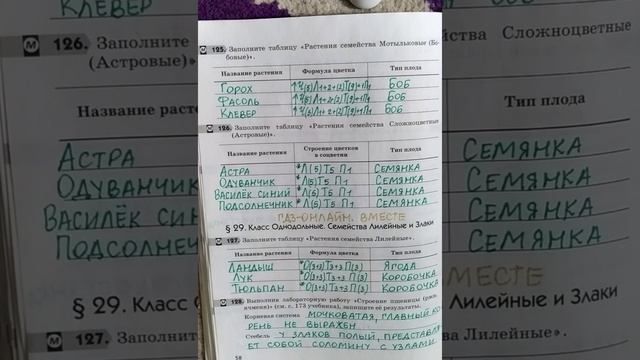 КЛЕВЕР
125. Заполните таблицу «Растения семейства Мотыльковые (Бобовые)».
Название растения Формула цветка Тип плода
ГОРОХ ↑Ч(5)Л1+2+(2)Т(9)+1П1 БОБ
ФАСОЛЬ ↑Ч(5)Л1+2+(2)Т(9)+1П1 БОБ
КЛЕВЕР ↑Ч(5)Л1+2+(2)Т(9)+1П1 БОБ
126. Заполните таблицу «Растения семейства Сложноцветные
(Астровые)».
Название растения Строение цветков
в соцветии Тип плода
АСТРА *Л(5)Т5 П1 СЕМЯНКА
ОДУВАНЧИК *Л(5)Т5 П1 СЕМЯНКА
ВАСИЛЁК СИНИЙ *Л(5)Т5 П1 СЕМЯНКА
ПОДСОЛНЕЧНИК *Л(5)Т5 П1 СЕМЯНКА
ГДЗ-ОНЛАЙН. ВМЕСТЕ
§ 29. Класс Однодольные. Семейства Лилейные и Злаки
127. Заполните таблицу «Растения семейства Лилейные».
Название растения Формула цветка Тип плода
ЛАНДЫШ *О(3+3)Т3+3 П(3) ЯГОДА
ЛУК *О(3+3)Т3+3 П(3) КОРОБОЧКА
ТЮЛЬПАН *О(3+3)Т3+3 П(3) КОРОБОЧКА
128. Выполните лабораторную работу «Строение пшеницы (ржи,
ячменя)» (см. с. 173 учебника), запишите её результаты.
Корневая система МОЧКОВАТАЯ, ГЛАВНЫЙ КО
РЕНЬ НЕ ВЫРАЖЕН
Стебель У ЗЛАКОВ ПОЛЫЙ, ПРЕДСТАВЛЯ
ЕТ СОБОЙ СОЛОМИНУ С УЗЛАМИ.
58
126. Заполните
(Астровые)».
Название растения
АСТРА
ОДУВАНЧИК
ВАСИЛЁК СИН
ПОДСОЛНЕЧ
§ 29. Класс
127. Заполните
Сложноцветные
Тип плода
СЕМЯНКА
СЕМЯНКА
СЕМЯНКА
СЕМЯНКА
МЕСТЕ
Лилейные и Злаки
Лилейные».